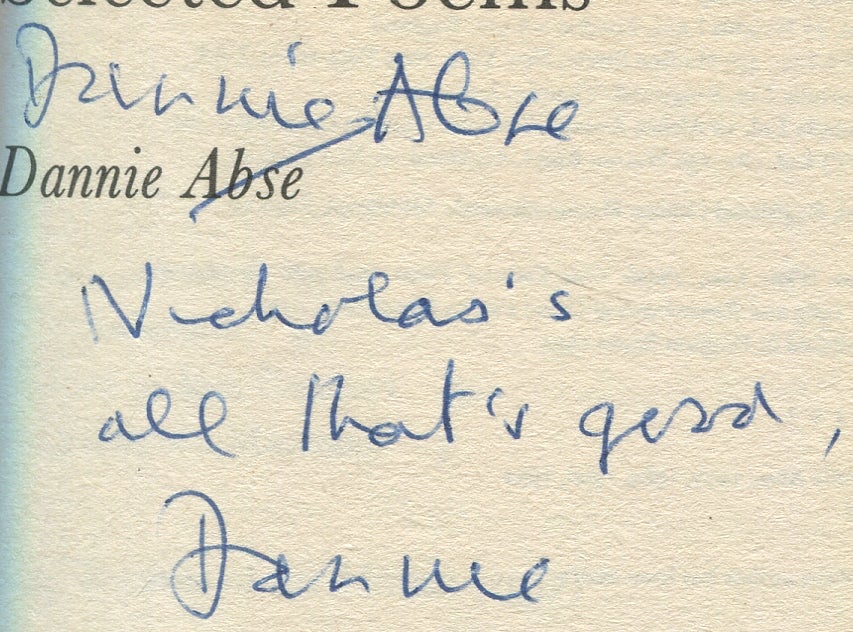 Selected Poems
Dannie Abse
Dannie Abse
Nicholas's
all that's good,
Dannie